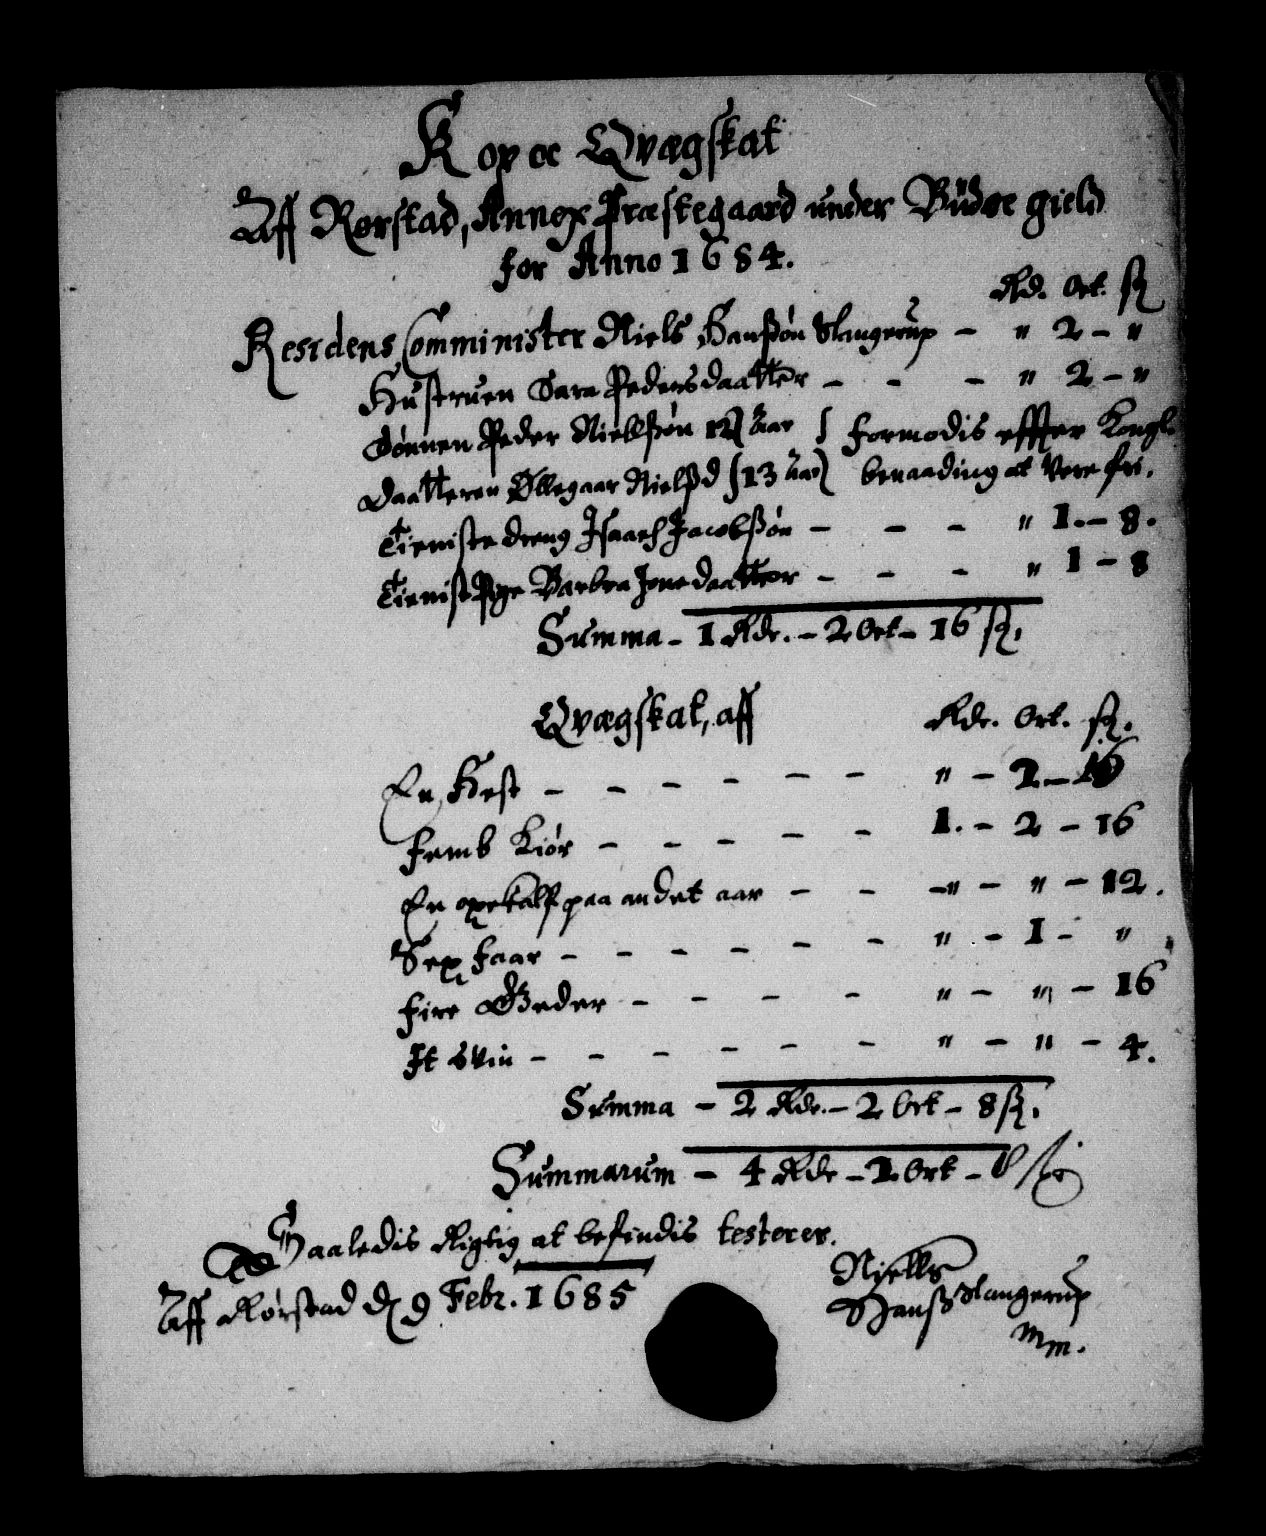 Kop oc Qvægskat
Aff Rørstad, Annex Præstegaard under Büdøe gield
for Anno 1684.
Rd. Ort. ß
Residens Comminister Niels Hansßøn Slangerup - " 2 - "
Hustruen Sara Pedersdaatter - - - " 2 - "
Sønnen Peder Niellßøn 12 Aar } formodis effter Kongl.
Daatteren Øllegaar Nielßd 13 aar } benaading at Vere fri.
Tieniste dreng Isaach Jacobßøn - - - " 1. - 8.
TienistPige Barbra Jonsdaatter - - - " 1 - 8
Summa - 1 Rdr. - 2 Ort - 16 ß.
Qvægskat, aff Rdr. Ort. ß.
En Hest - - - - - - " - 2 - 16
Femb Kiør - - - - - 1. - 2 - 16
En oxekalf paa andet aar - - - " - " - 12.
Sex Faar - - - - - - " - 1 - "
Fire Geder - - - - " - " - 16
It Svin - - - - - - " - " - 4.
Summa - 2 Rdr. - 2 Ort - 8 ß.
Summarum - 4 Rdr - 1 Ort - 0 ß
Saaledis Rigtig at befindis testerer.
Aff Rørstad d. 9 Febr. 1685
Niells
Hansß Slangerup
mm.